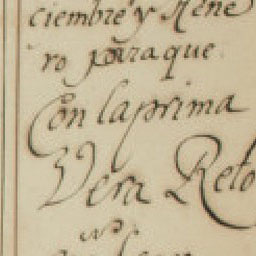 ciembre y Hene
ro para que
Con laprima
Vera Reto